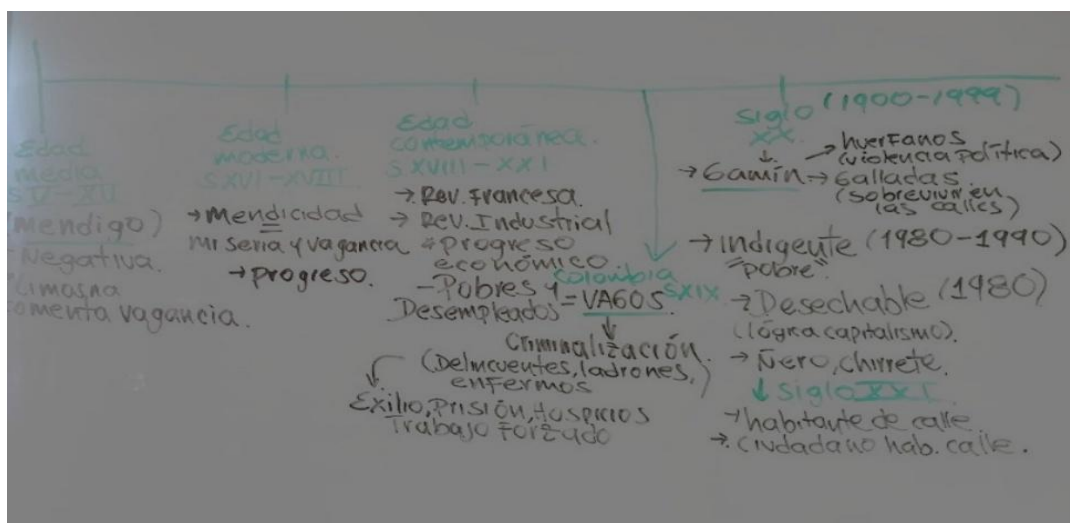 Edad
media
S V-XII
(Mendigo)
-Negativa.
Limosna
fomenta vagancia.
Edad
moderna.
S XVI-XVIII
→Mendicidad
miseria y vagancia
→progreso.
Edad
contemporánea.
S XVIII-XXI
→Rev. Francesa.
→ Rev. Industrial
*progreso
económico.
-Pobres y
Desempleados = VAGOS.
Colombia
S XIX
Criminalización.
(Delincuentes, ladrones,
enfermos)
Exilio, Prisión, Hospicios
Trabajo Forzado
siglo (1900-1999)
XX.
→Gamín→
huerfanos
(violencia política)
Galladas.
(sobreviven en
las calles)
→Indigente (1980-1990)
"pobre".
→Desechable (1980)
(lógica capitalismo).
→ Ñero, chirrete.
↓ Siglo XXI
→habitante de calle
→ ciudadano hab. calle.